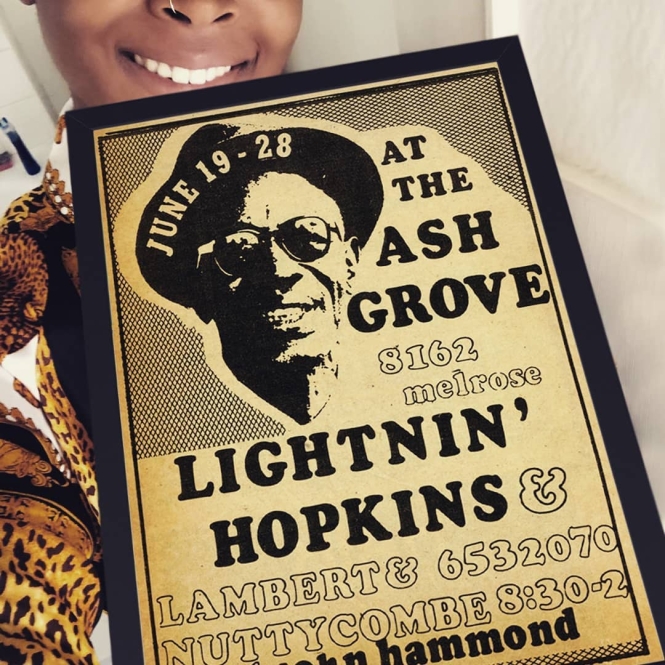 JUNE 19-28
AT
THE
ASH
GROVE
8162
melrose
LIGHTNIN'
HOPKINS &
LAMBERT & 6532070
NUTTYCOMBE 8:30-2
john hammond